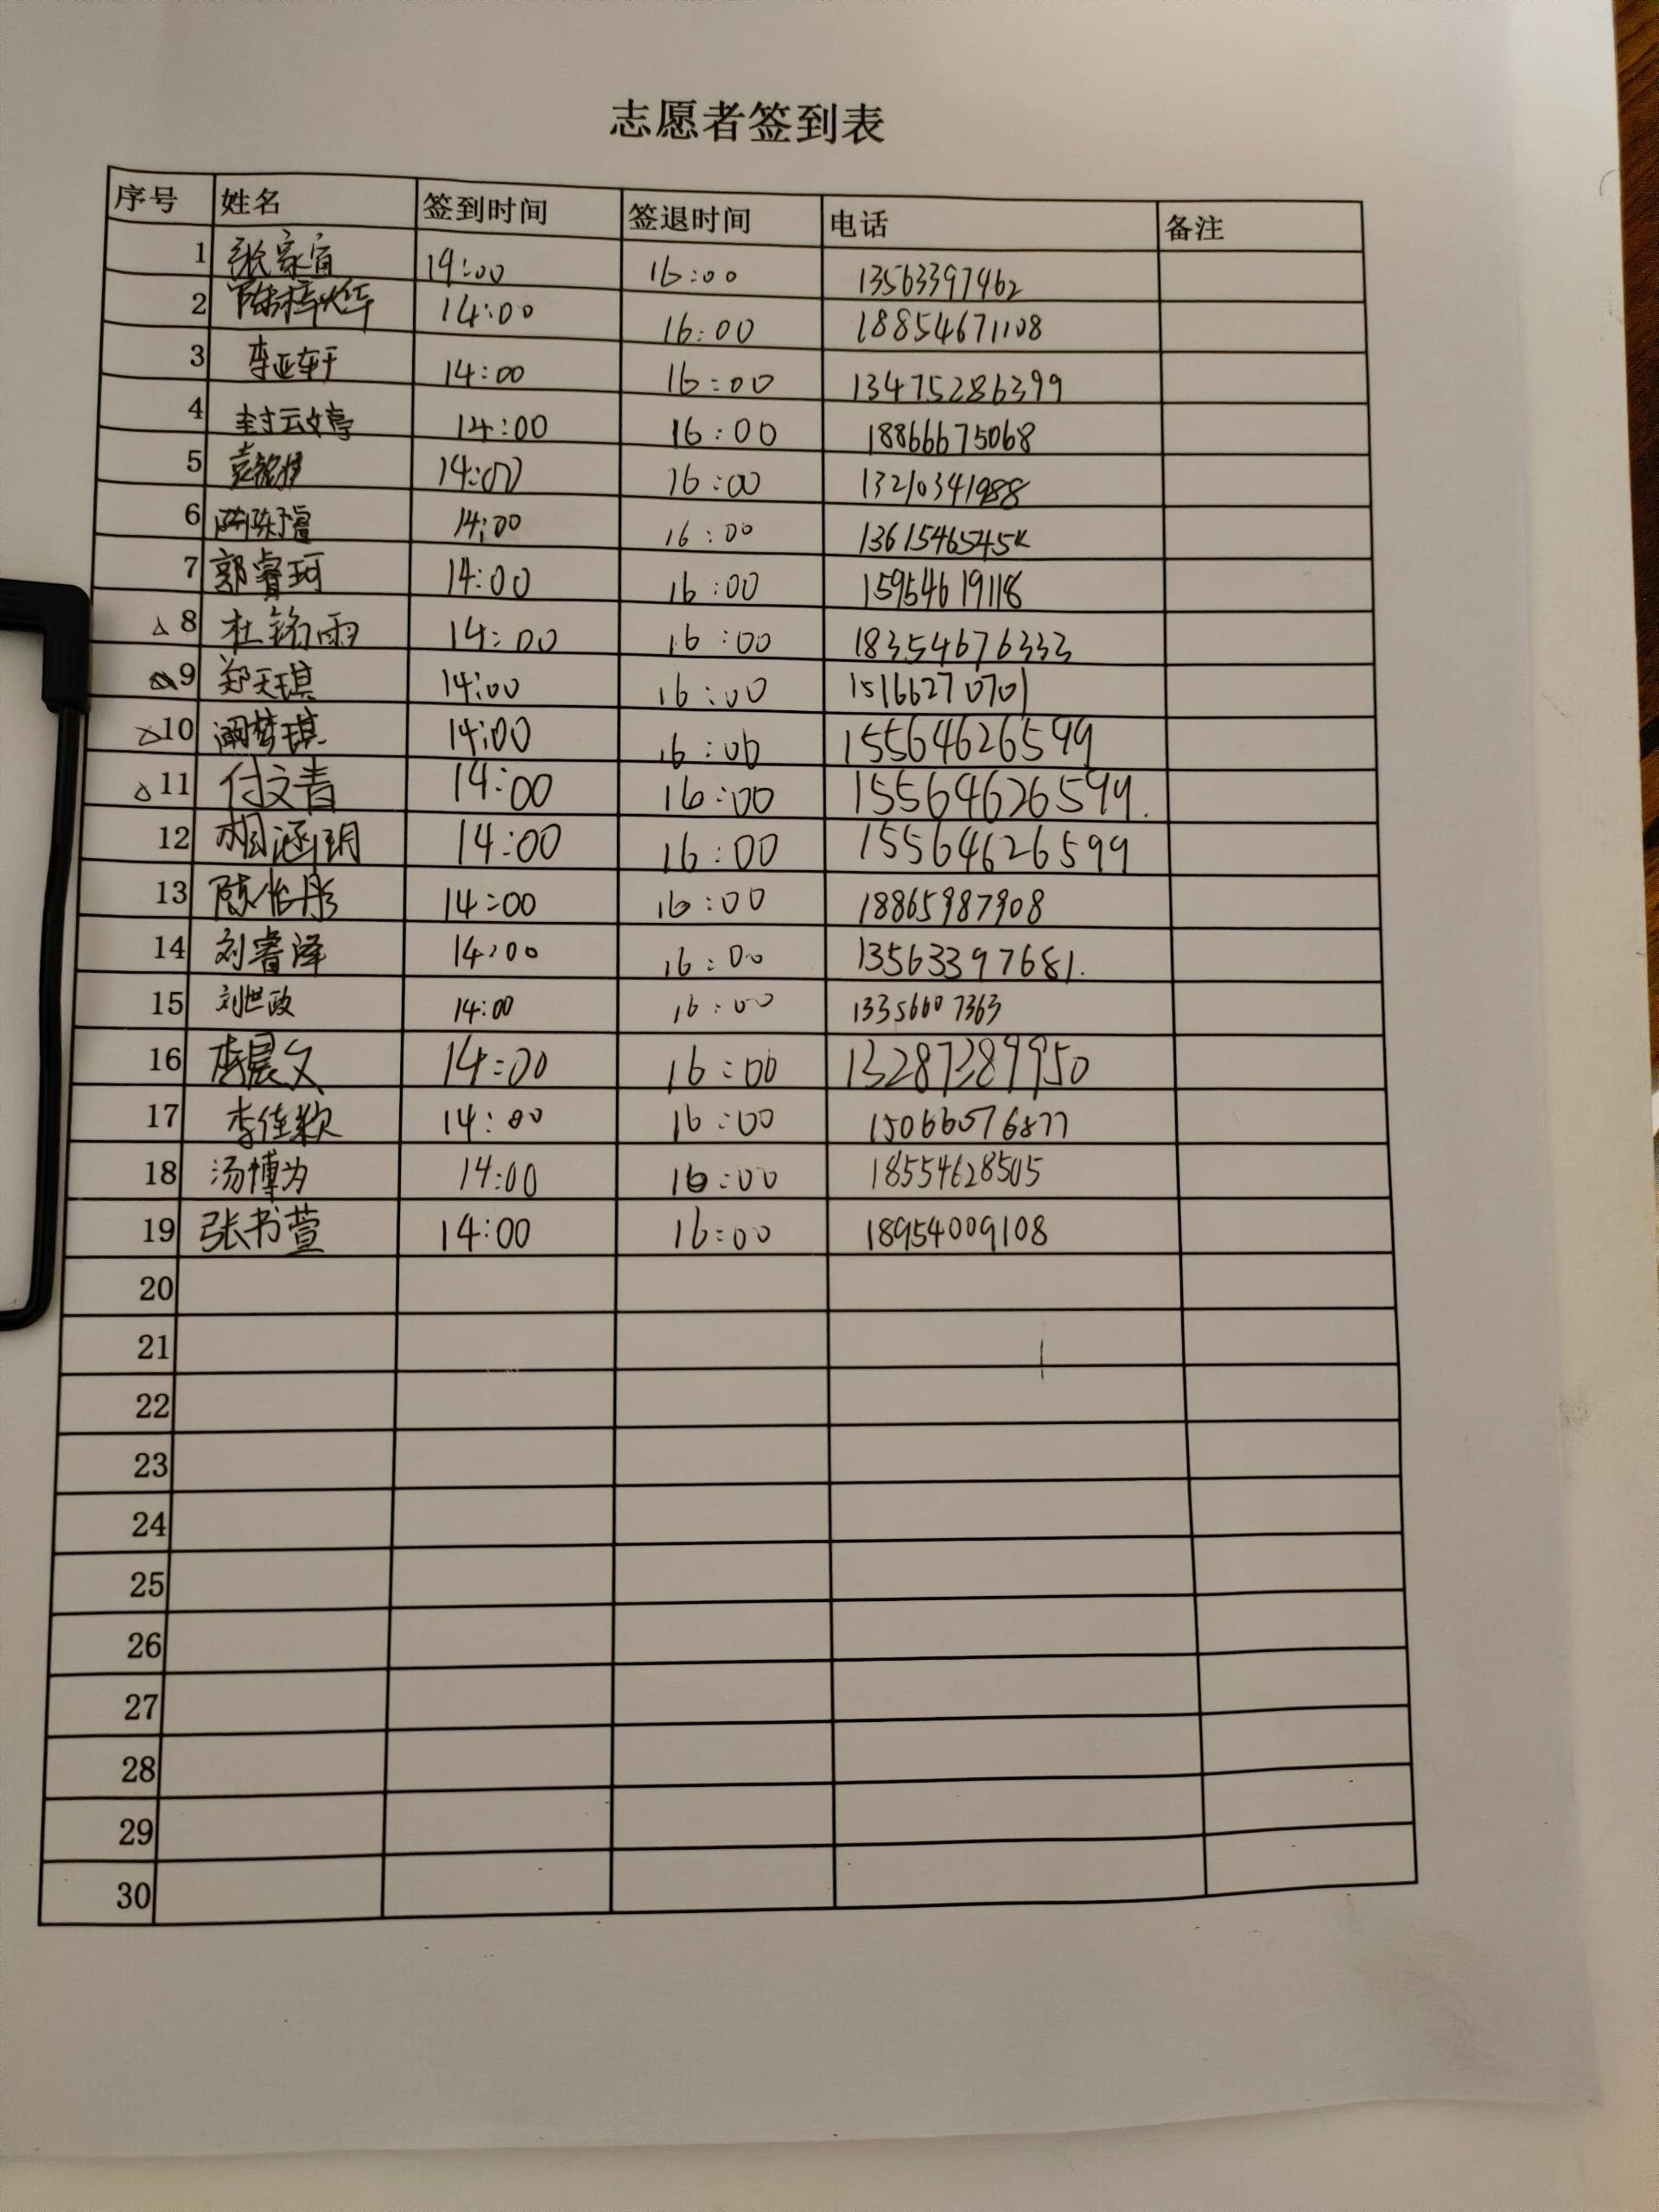 志愿者签到表
序号 姓名 签到时间 签退时间 电话 备注
1 张家宜 14:00 16:00 13563397462
2 陈梓烨 14:00 16:00 18854671108
3 李亚轩 14:00 16:00 13475286399
4 封云婷 14:00 16:00 18866675068
5 袁铭 14:00 16:00 13210341988
6 14:00 16:00
7 郭睿珂 14:00 16:00 15954619118
8 杜铭雨 14:00 16:00 18354676333
9 郑天琪 14:00 16:00 15166270701
10 阚梦琪 14:00 16:00 15564626599
11 付文青 14:00 16:00 15564626599.
12 涵玥 14:00 16:00 15564626599
13 陈怡彤 14:00 16:00 18865987908
14 刘睿泽 14:00 16:00 13563397681.
15 刘世政 14:00 16:00 13356607363
16 李晨文 14:00 16:00 13287389950
17 李佳欣 14:00 16:00 15066076877
18 汤博为 14:00 16:00 18554628505
19 张书萱 14:00 16:00 18954009108
20
21
22
23
24
25
26
27
28
29
30